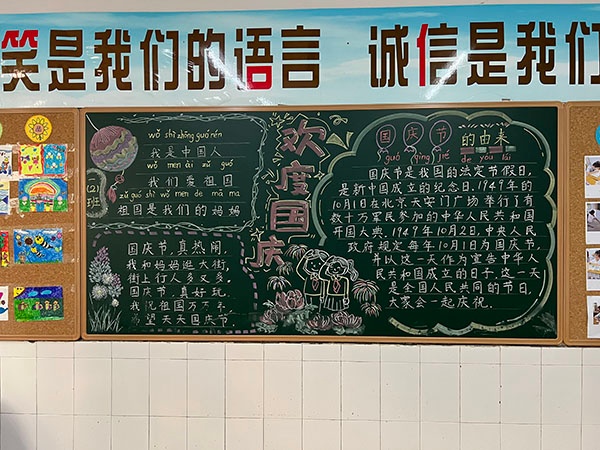 笑是我们的语言 诚信是我们
欢度国庆
wǒ shì zhōng guó rén
我是中国人
wǒ men ài zǔ guó
我们爱祖国
zǔ guó shì wǒ men de mā ma
祖国是我们的妈妈
(2)班
国庆节,真热闹,
我和妈妈逛大街,
街上行人多又多。
国庆节,真好玩,
我祝祖国万万岁,
希望天天国庆节
国庆节的由来
guó qìng jié de yóu lái
国庆节是我国的法定节假日,
是新中国成立的纪念日.1949年的
10月1日在北京天安门广场举行了有
数十万军民参加的中华人民共和国
开国大典.1949年10月2日,中央人民
政府规定每年10月1日为国庆节,
并以这一天作为宣告中华人
民共和国成立的日子.这一天
是全国人民共同的节日,
大家会一起庆祝.